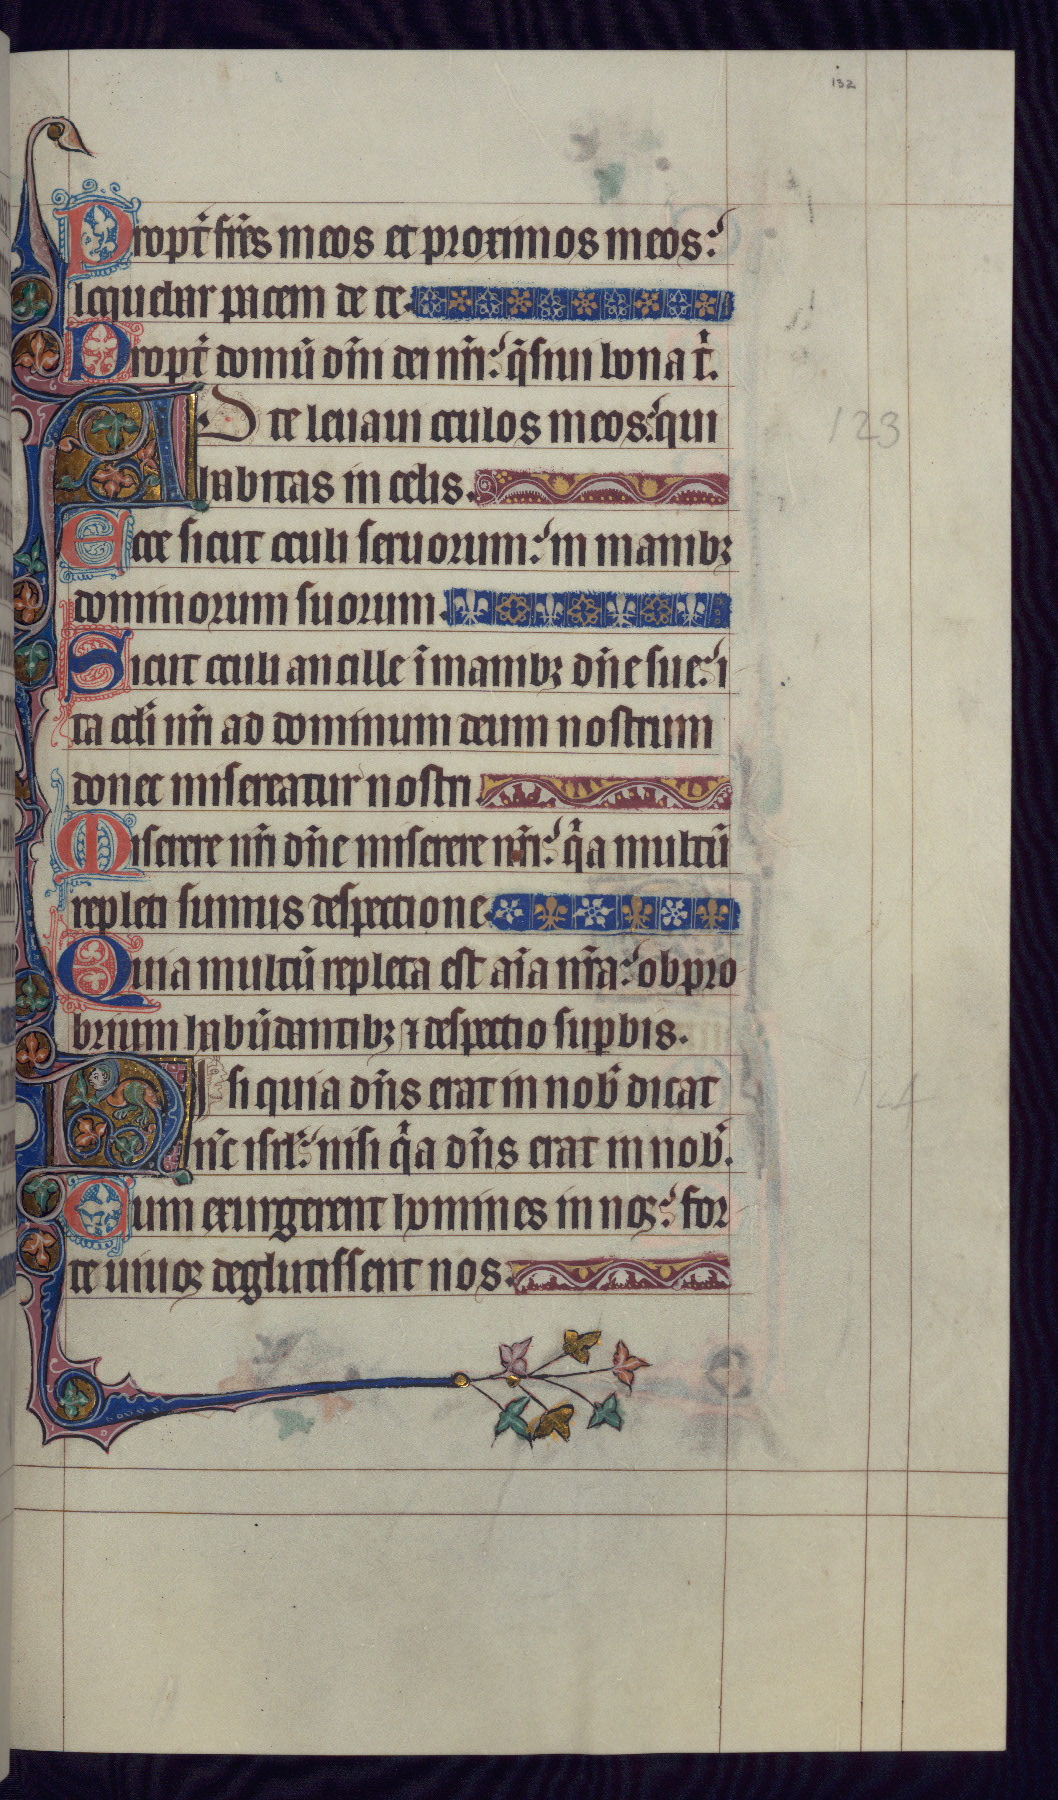 132
Propt̃ fr̃es meos et proximos meos:
loquebar pacem de te.
Propt̃ domũ dñi dei nr̃i: q̃siui bona t̃.
AD te leuaui oculos meos: qui
habitas in celis.
Ecce sicut oculi seruorum: in manibꝫ
dominorum suorum.
Sicut oculi ancille ĩ manibꝫ dñe sue: i
ta ocl̃i nr̃i ad dominum deum nostrum
donec misereatur nostri.
Miserere nr̃i dñe miserere nr̃i: qͥa multũ
repleti sumus despectione.
Quia multũ repleta est aĩa nr̃a: obpro
brium habũdantibꝫ ⁊ despectio supbis.
NIsi quia dñs erat in nob̃ dicat
nũc isrl̃: nisi qͥa dñs erat in nob̃.
Cum exurgerent homines in nos: for
te uiuos deglutissent nos.
123
124